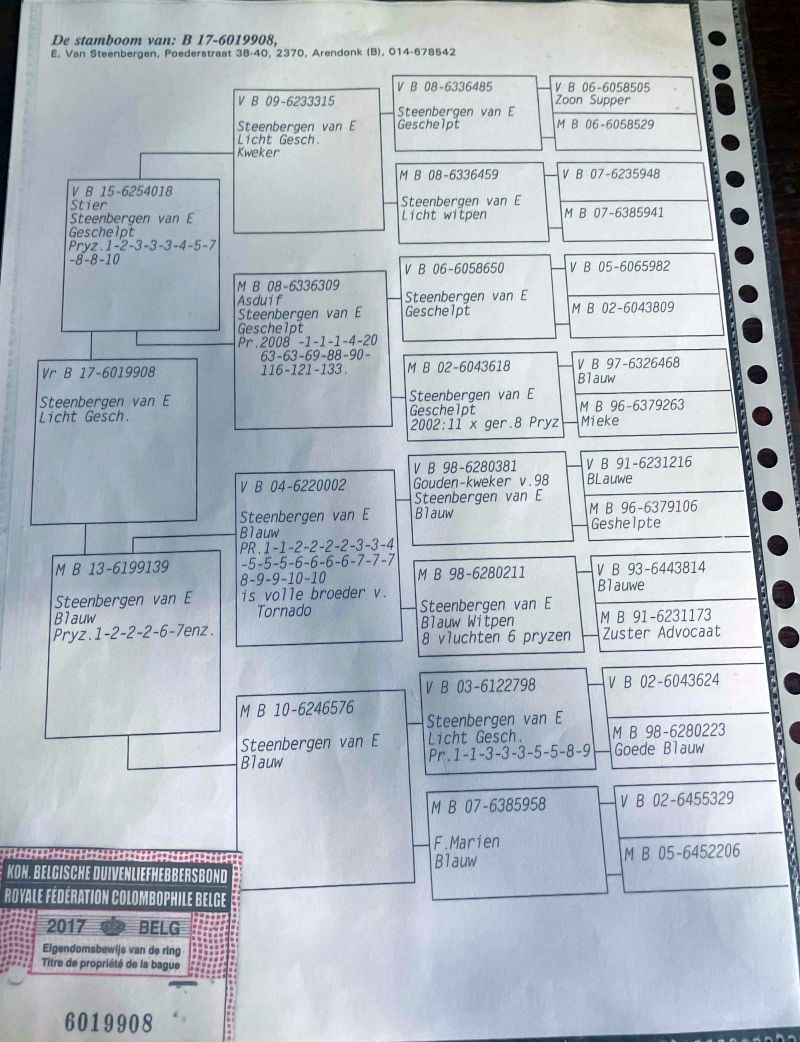 De stamboom van: B 17-6019908,
E. Van Steenbergen, Poederstraat 38-40, 2370, Arendonk (B), 014-678542
Vr B 17-6019908
Steenbergen van E
Licht Gesch.
V B 15-6254018
Stier
Steenbergen van E
Geschelpt
Pryz.1-2-3-3-3-4-5-7
-8-8-10
M B 13-6199139
Steenbergen van E
Blauw
Pryz.1-2-2-2-6-7enz.
V B 09-6233315
Steenbergen van E
Licht Gesch.
Kweker
M B 08-6336309
Asduif
Steenbergen van E
Geschelpt
Pr.2008 -1-1-1-4-20
63-63-69-88-90-
116-121-133.
V B 04-6220002
Steenbergen van E
Blauw
PR.1-1-2-2-2-2-3-3-4
-5-5-5-6-6-6-6-7-7-7
8-9-9-10-10
is volle broeder v.
Tornado
M B 10-6246576
Steenbergen van E
Blauw
V B 08-6336485
Steenbergen van E
Geschelpt
M B 08-6336459
Steenbergen van E
Licht witpen
V B 06-6058650
Steenbergen van E
Geschelpt
M B 02-6043618
Steenbergen van E
Geschelpt
2002:11 x ger.8 Pryz
V B 98-6280381
Gouden-kweker v.98
Steenbergen van E
Blauw
M B 98-6280211
Steenbergen van E
Blauw Witpen
8 vluchten 6 pryzen
V B 03-6122798
Steenbergen van E
Licht Gesch.
Pr.1-1-3-3-3-5-5-8-9
M B 07-6385958
F.Marien
Blauw
V B 06-6058505
Zoon Supper
M B 06-6058529
V B 07-6235948
M B 07-6385941
V B 05-6065982
M B 02-6043809
V B 97-6326468
Blauw
M B 96-6379263
Mieke
V B 91-6231216
BLauwe
M B 96-6379106
Geshelpte
V B 93-6443814
Blauwe
M B 91-6231173
Zuster Advocaat
V B 02-6043624
M B 98-6280223
Goede Blauw
V B 02-6455329
M B 05-6452206
KON. BELGISCHE DUIVENLIEFHEBBERSBOND
ROYALE FÉDÉRATION COLOMBOPHILE BELGE
2017 BELG
Eigendomsbewijs van de ring
Titre de propriété de la bague
6019908